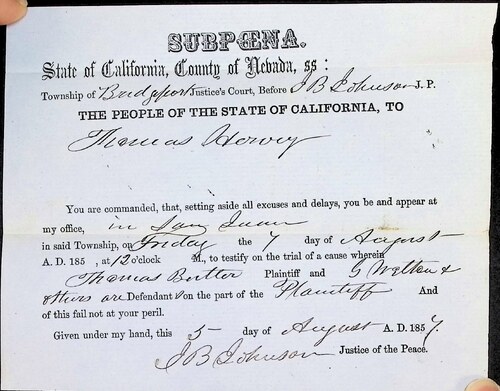 SUBPŒNA.
State of California, County of Nevada, ss:
Township of Bridgeport Justice's Court, Before J B Johnson J. P.
THE PEOPLE OF THE STATE OF CALIFORNIA, TO
Thomas Hervey
You are commanded, that, setting aside all excuses and delays, you be and appear at
my office, in San Juan
in said Township, on Friday the 7 day of August
A. D. 185 , at 12 o'clock M., to testify on the trial of a cause wherein
Thomas Butler Plaintiff and G & 
others are Defendant s on the part of the Plaintiff And
of this fail not at your peril.
Given under my hand, this 5 day of August A. D. 1857.
J B Johnson Justice of the Peace.